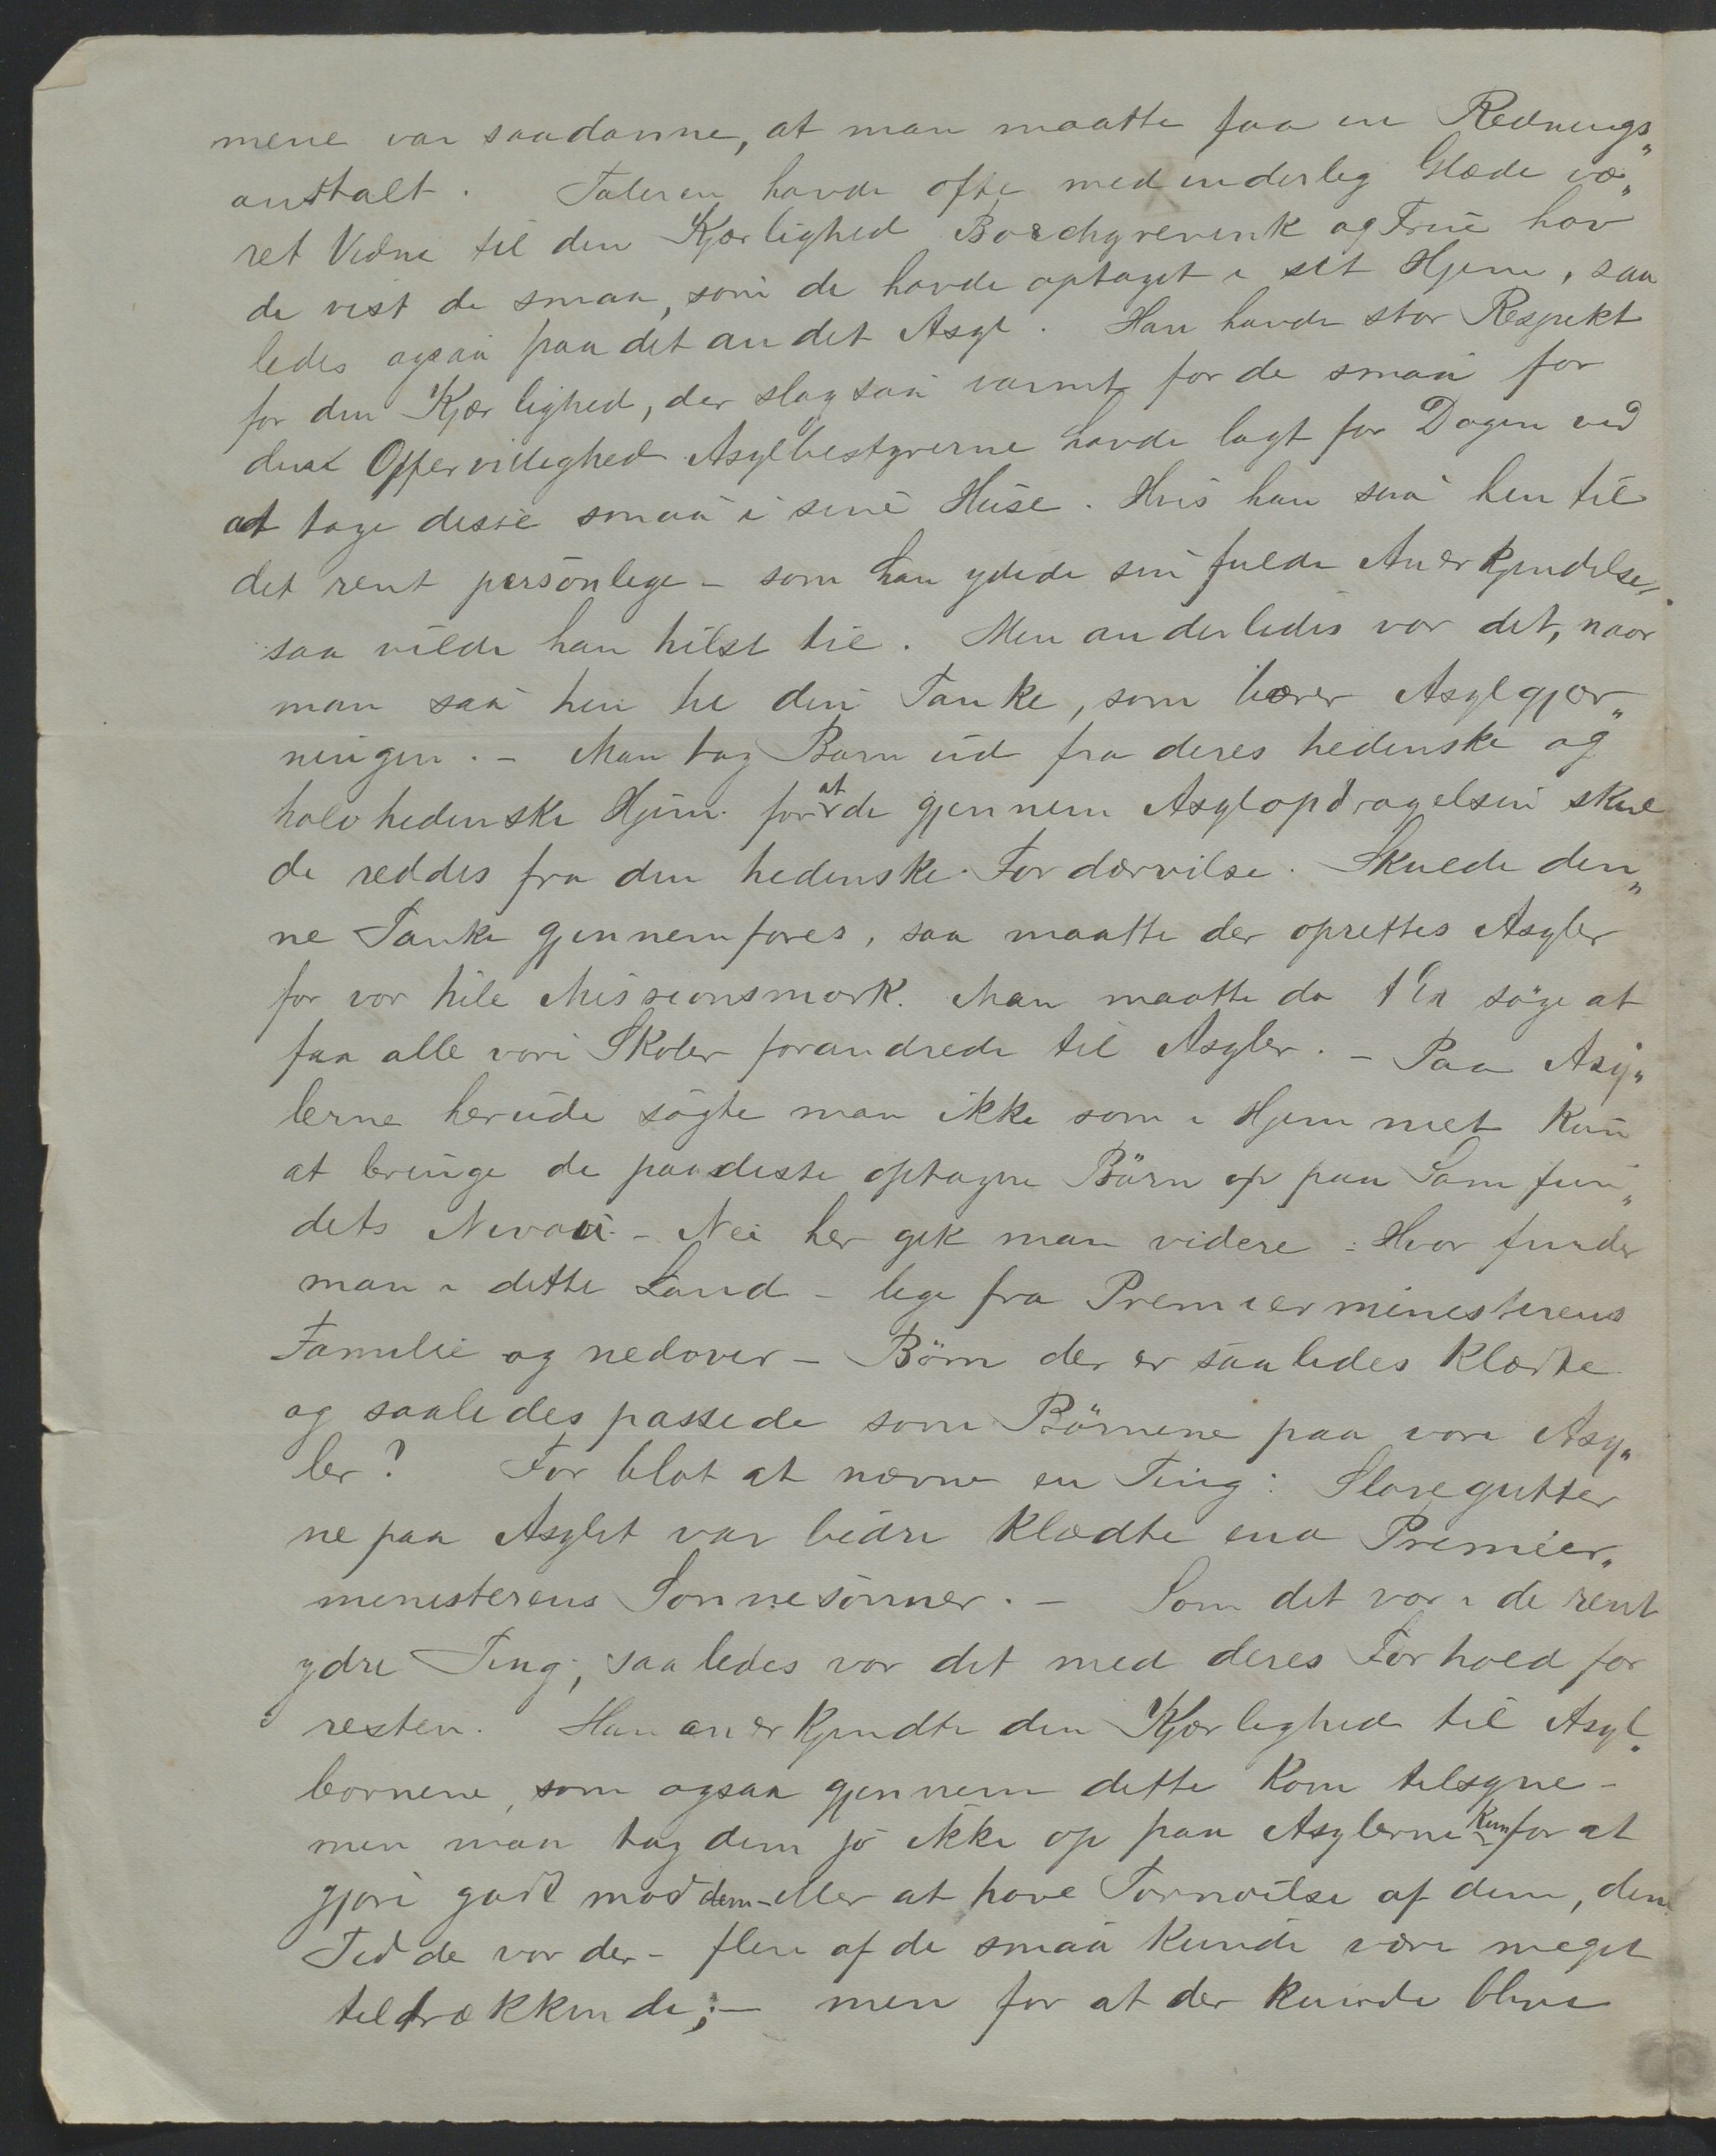 mene var saadanne, at man maatte faa en Rednings„
anstalt. Taleren havde ofte med inderlig Glæde væ„
ret Vidne til den Kjærlighed Borchgrevink og Frue hav
de vist de smaa, som de havde optaget i sit Hjem, saa
ledes ogsaa paa det andet Asyl. Han havde stor Respekt
for den Kjærlighed, der slog saa varmt for de smaa for
den Offervillighed Asylbestyrerne havde lagt for Dagen ved
at tage disse smaa i sine Huse. Hvis han saa hen til
det rent personlige – som han ydede sin fulde Anerkjendelse,
saa vilde han hilst til. Men anderledes var det, naar
man saa hen til den Tanke, som bærer Asylgjer„
ningen. – Man tog Barn ud fra deres hedenske og
halvhedenske Hjem forat de gjennem Asylopdragelsen skul
de reddes fra den hedenske Fordærvelse. Skulde den„
ne Tanke gjennemføres, saa maatte der oprettes Asyler
for vor hele Missionsmark. Man maatte da søge at
faa alle vore Skoler forandrede til Asyler. – Paa Asy„
lerne herude søgte man ikke som i Hjemmet kun
at bringe de paa disse optagne Börn op paa Samfun„
dets Nivaa. – Nei her gik man videre: Hvor finder
man i dette Land – lige fra Premierministerens
Familie og nedover – Börn der er saaledes klædte
og saaledes passede som Börnene paa vore Asy„
ler? For blot at nævne en Ting: Slavegutter
ne paa Asylet var bedre klædte end Premier„
ministerens Sønnesønner. – Som det var i de rent
ydre Ting, saaledes var det med deres Forhold for
resten. Han anerkjendte den Kjærlighed til Asyl„
bornene, som ogsaa gjennem dette kom tilsyne –
men man tog dem jo ikke op paa Asylerne kun for at
gjøre godt mod dem – eller at have Fornøielse af dem, den
Tid de var der – flere af de smaa kunde være meget
tiltrækkende; – men for at der kunde blive